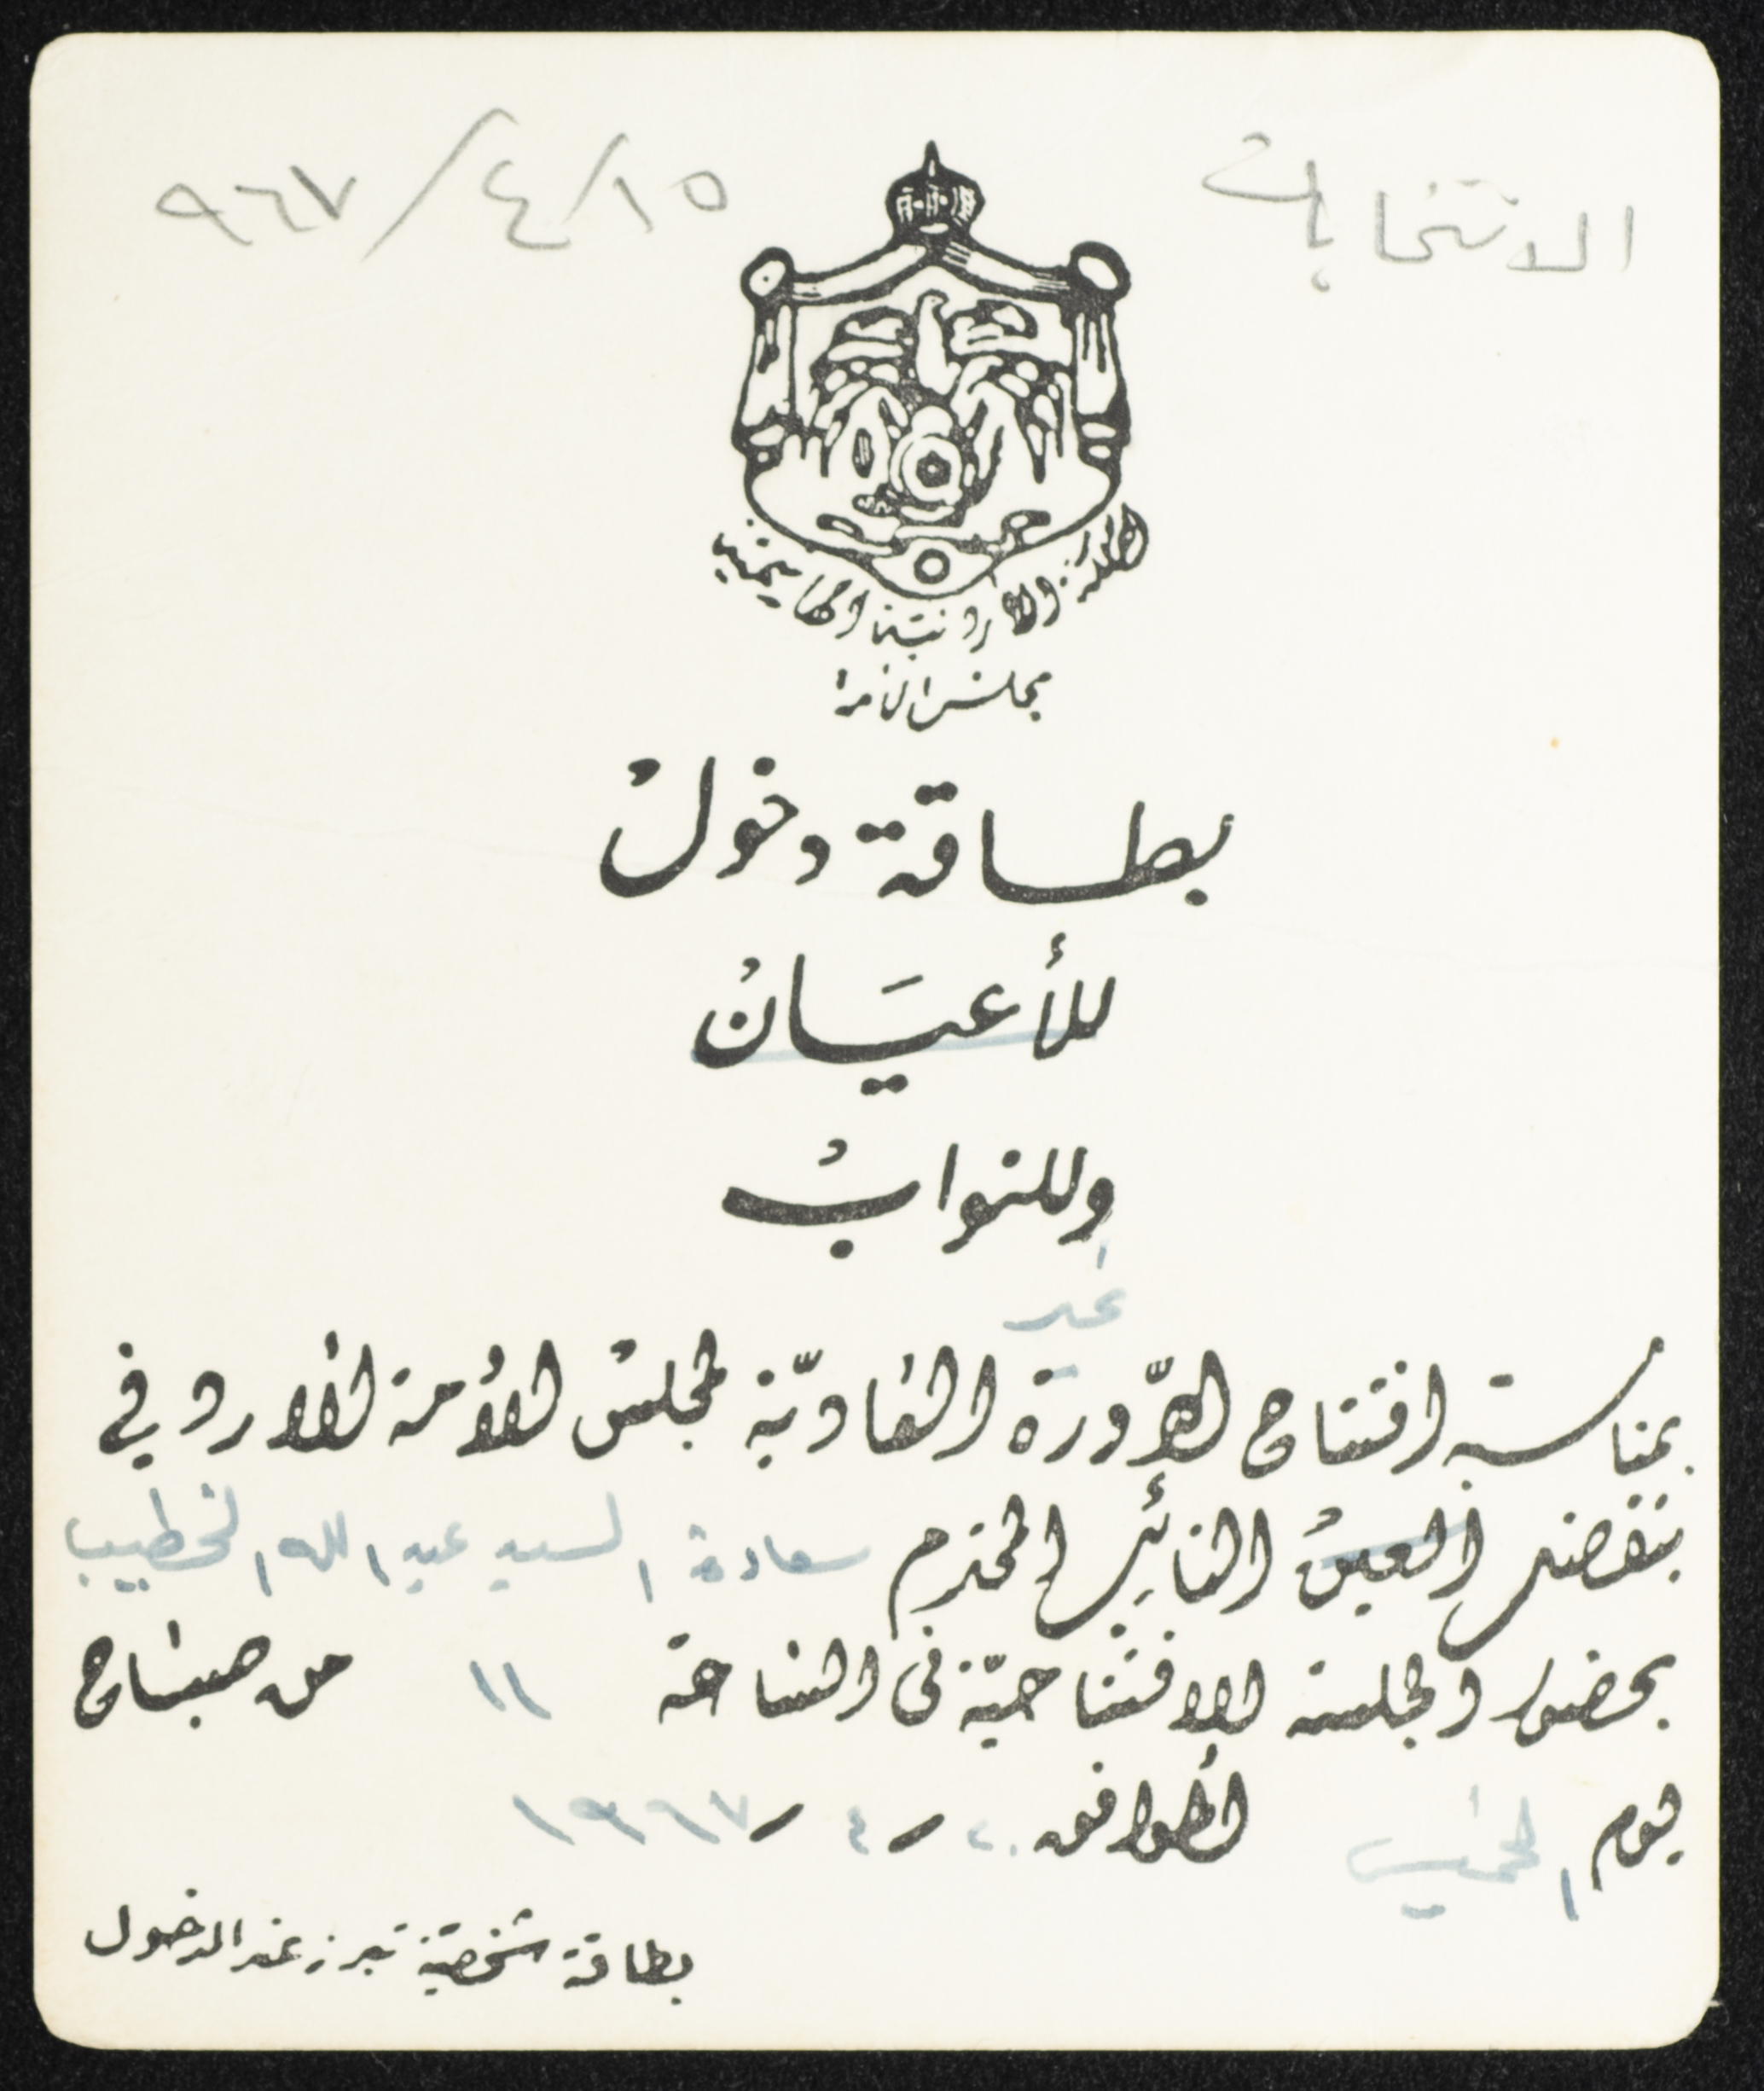 الانتخابات
١٥/٤/٩٦٧
المملكة الأردنية الهاشمية
مجلس الأمة
بطاقة دخول
للأعيان
وللنواب
غير
بمناسبة افتتاح الدّورة العاديّة لمجلس الأمة الأردني
يتفضل العين النائب المحترم سعادة السيد عبد الله الخطيب
بحضور الجلسة الافتتاحيّة في الساعة ١١ من صباح
يوم الخميس الموافق ٢٠ / ٤ / ١٩٦٧
بطاقة شخصية تبرز عند الدخول